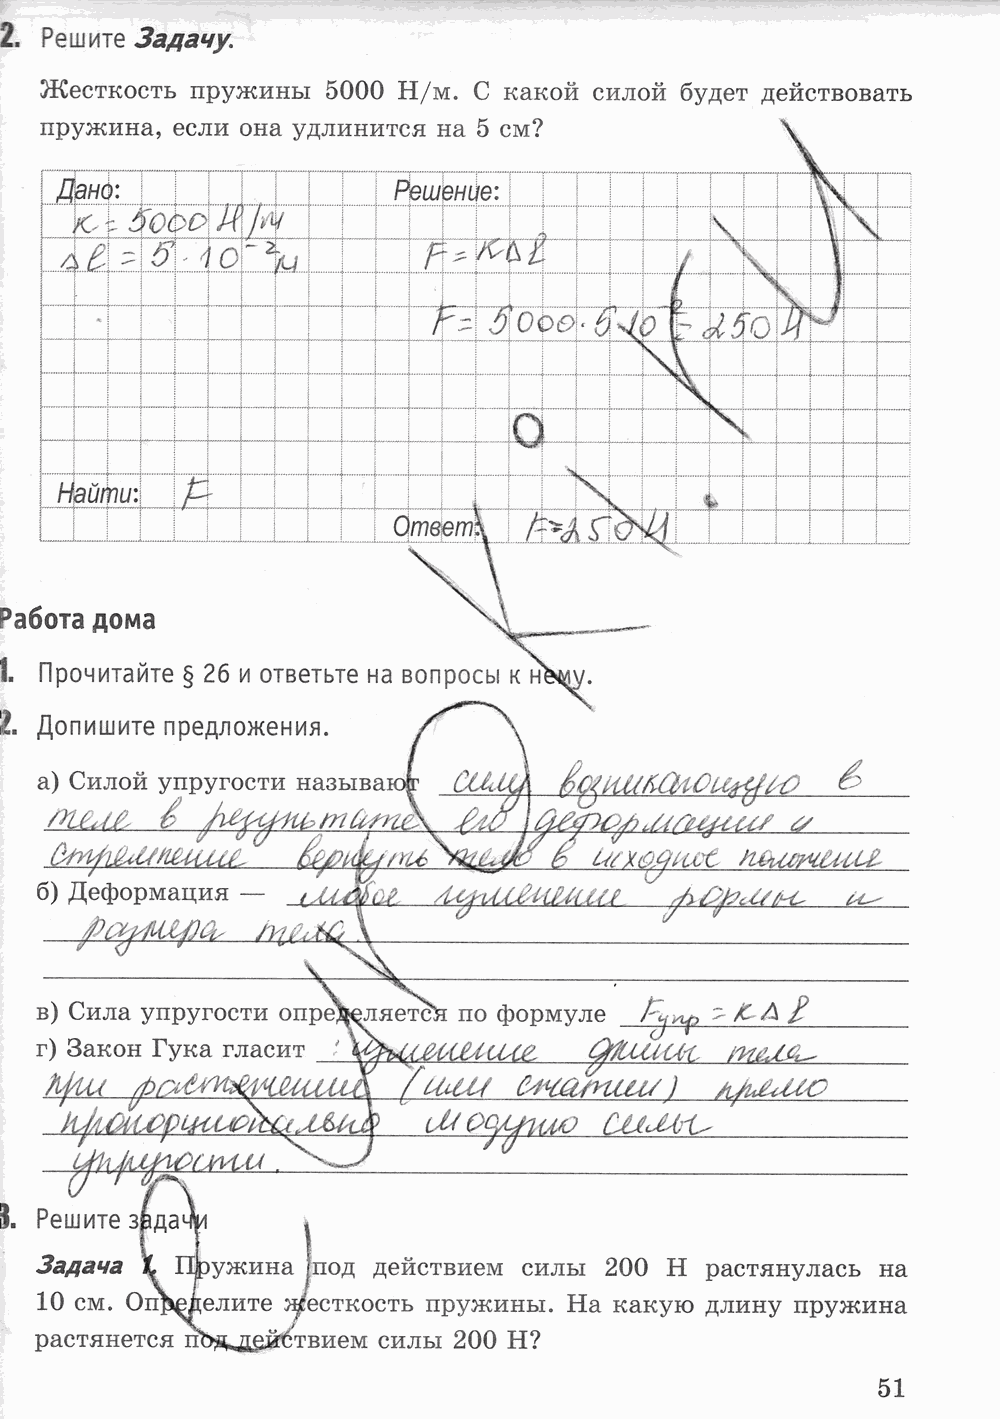 2. Решите Задачу.
Жесткость пружины 5000 Н/м. С какой силой будет действовать
пружина, если она удлинится на 5 см?
Дано: Решение:
K = 5000 Н/м
Δl = 5 · 10⁻² м F = KΔl
F = 5000 · 5 · 10⁻² = 250 Н
Найти: F
Ответ: F = 250 Н
Работа дома
1. Прочитайте § 26 и ответьте на вопросы к нему.
2. Допишите предложения.
а) Силой упругости называют силу возникающую в
теле в результате его деформации и
стремление вернуть тело в исходное положение
б) Деформация — любое изменение формы и
размера тела.
в) Сила упругости определяется по формуле Fупр = KΔl
г) Закон Гука гласит : изменение длины тела
при растяжении (или сжатии) прямо
пропорционально модулю силы
упругости.
3. Решите задачи
Задача 1. Пружина под действием силы 200 Н растянулась на
10 см. Определите жесткость пружины. На какую длину пружина
растянется под действием силы 200 Н?
51